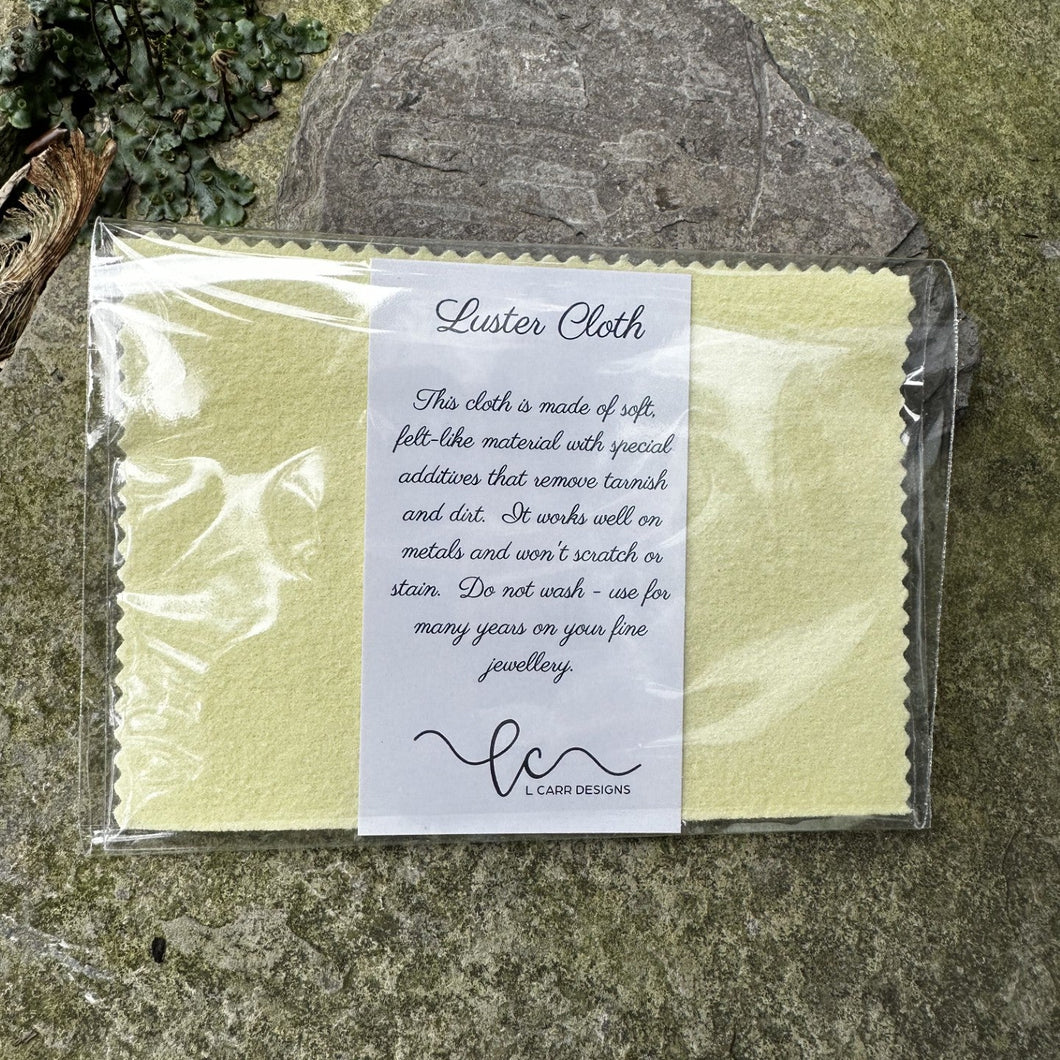 Luster Cloth
This cloth is made of soft,
felt-like material with special
additives that remove tarnish
and dirt. It works well on
metals and won't scratch or
stain. Do not wash - use for
many years on your fine
jewellery.
lc
L CARR DESIGNS